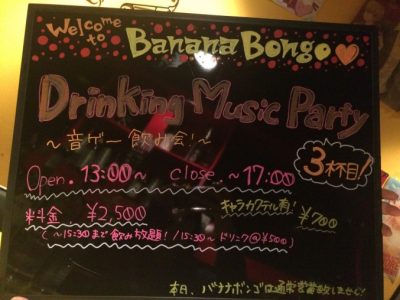 Welcome to Banana Bongo
Drinking Music Party
～音ゲー飲み会！～
3杯目！
Open. 13:00～ Close. ～17:00
料金 ¥2,500
キャラカクテル有！ ¥700
(～15:30まで飲み放題！/15:30～ドリンク@¥500)
本日、バナナボンゴは通常営業致しません！